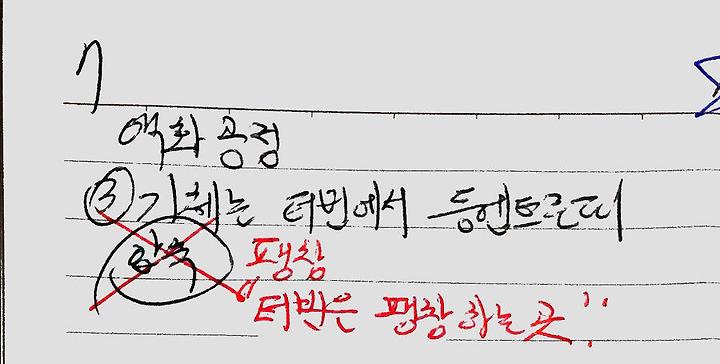 7
액화 공정
③ 기체는 터빈에서 등엔트로피
압축 팽창
"터빈은 팽창하는 곳"